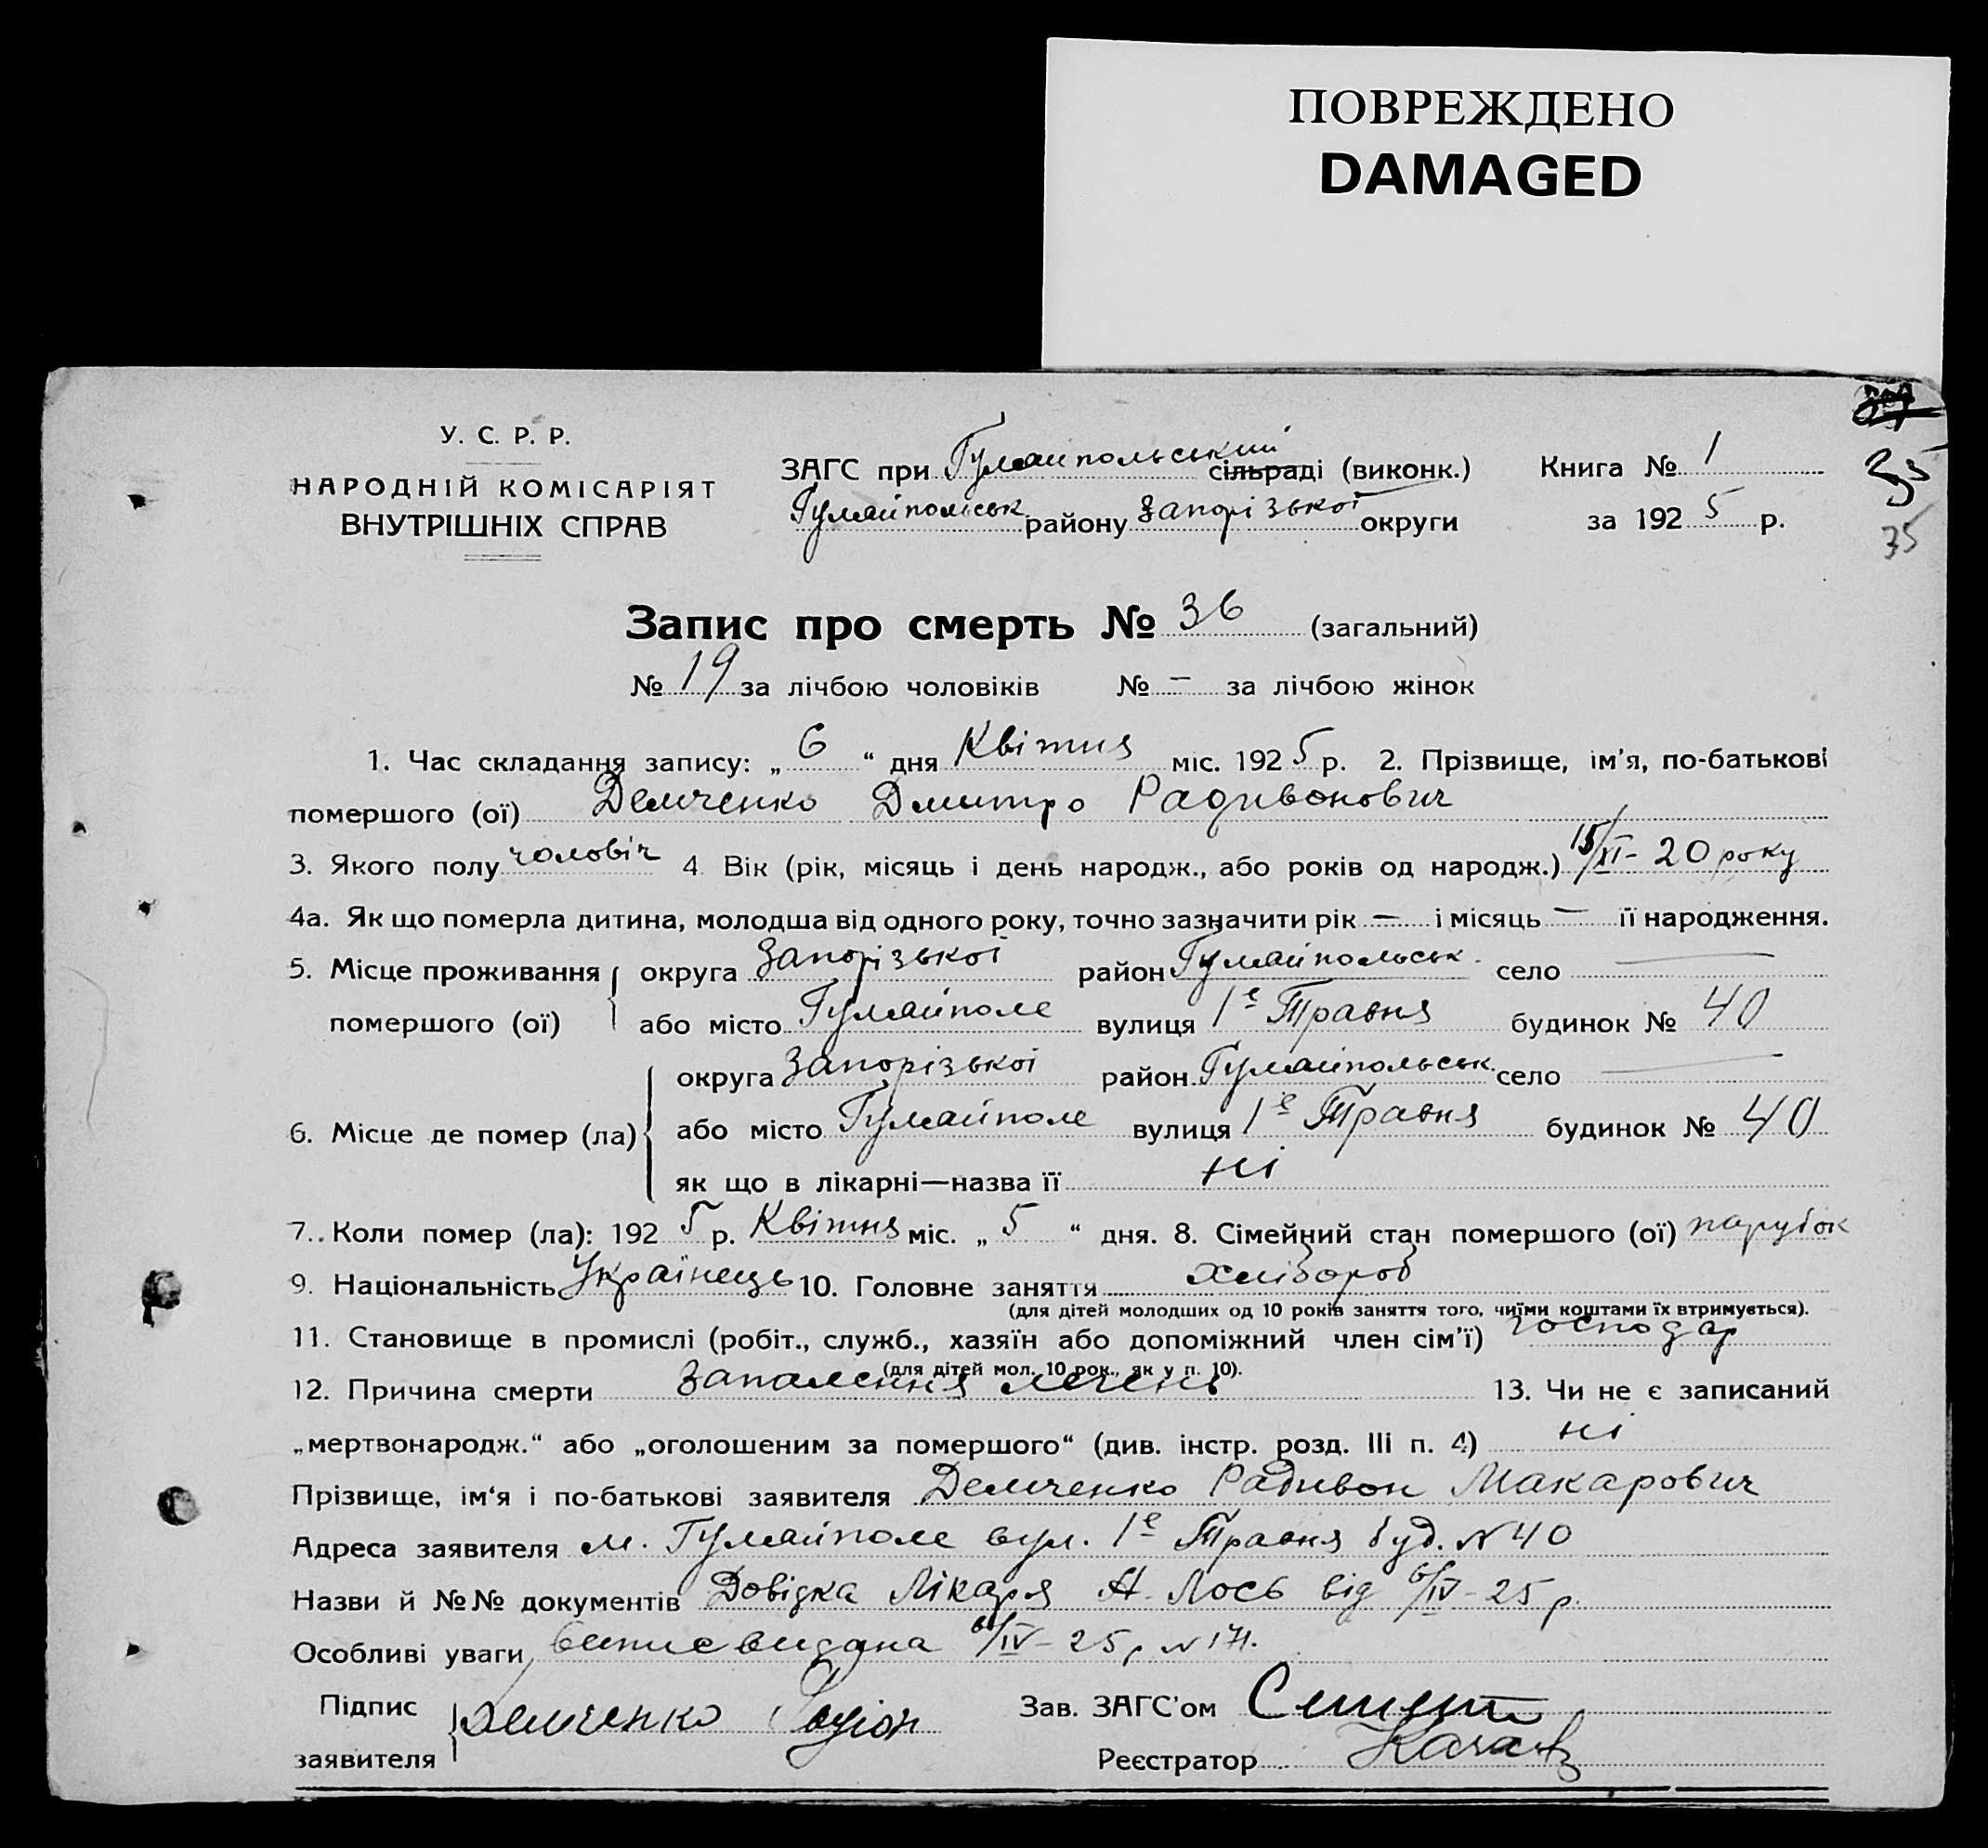 ПОВРЕЖДЕНО
DAMAGED
У. С. Р. Р.
НАРОДНІЙ КОМІСАРІЯТ
ВНУТРІШНІХ СПРАВ
ЗАГС при Гуляйпольський сільраді (виконк.)
Гуляйпольськ району Запорізької округи
Книга № 1
за 1925 р.
35
35
Запис про смерть № 36 (загальний)
№ 19 за лічбою чоловіків № — за лічбою жінок
1. Час складання запису: „ 6 “ дня Квітня міс. 1925 р. 2. Прізвище, ім'я, по-батькові
помершого (ої) Демченко Дмитро Радивонович
3. Якого полу чоловіч 4. Вік (рік, місяць і день народж., або років од народж.) 15/XI - 20 року
4а. Як що померла дитина, молодша від одного року, точно зазначити рік — і місяць — її народження.
5. Місце проживання округа Запорізької район Гуляйпольськ. село —
помершого (ої) або місто Гуляйполе вулиця 1е Травня будинок № 40
округа Запорізької район Гуляйпольськ. село —
6. Місце де помер (ла) або місто Гуляйполе вулиця 1е Травня будинок № 40
як що в лікарні—назва її ні
7. Коли помер (ла): 1925 р. Квітня міс. „ 5 “ дня. 8. Сімейний стан помершого (ої) парубок
9. Національність Українець 10. Головне заняття хлібороб
(для дітей молодших од 10 років заняття того, чиїми коштами їх втримується).
11. Становище в промислі (робіт., служб., хазяїн або допоміжний член сім'ї) господар
(для дітей мол. 10 рок., як у п. 10).
12. Причина смерти Запалення легень 13. Чи не є записаний
„мертвонародж.“ або „оголошеним за помершого“ (див. інстр. розд. III п. 4) ні
Прізвище, ім'я і по-батькові заявителя Демченко Радивон Макарович
Адреса заявителя м. Гуляйполе вул. 1е Травня буд. № 40
Назви й №№ документів Довідка Лікаря А. Лось від 6/IV - 25 р.
Особливі уваги випис видана 6/IV - 25 р № 171.
Підпис
заявителя Демченко Родіон
Зав. ЗАГС'ом
Реєстратор